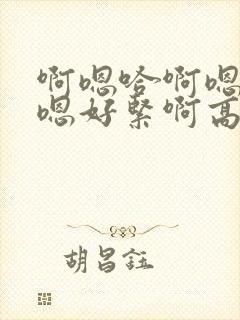 啊嗯哈啊嗯
嗯好紧啊高
胡昌鈺